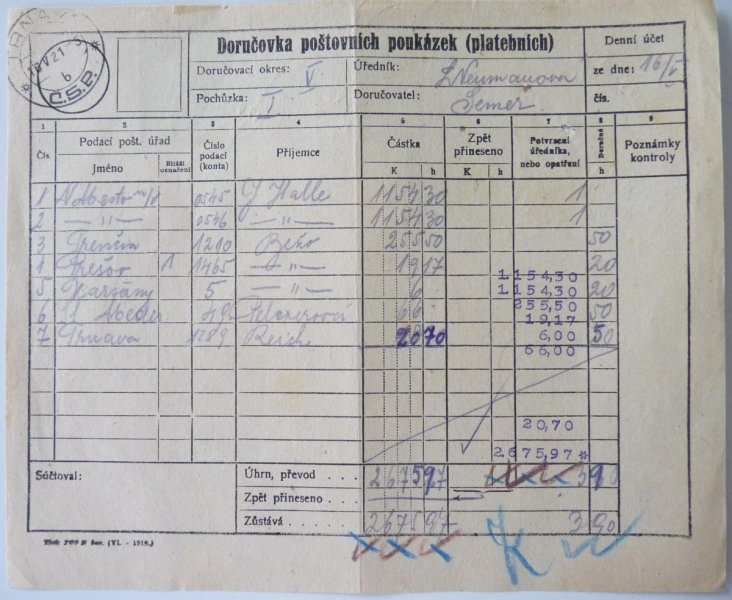 Doručovka poštovních poukázek (platebních)
Denní účet
Doručovací okres: V
Úředník: Neumanova
ze dne: 16/V
Pochůzka: I
Doručovatel: Semer
čís.
Č.S.P.
1 2 3 4 5 6 7 8 9
Čís.
Podací pošt. úřad
Jméno
Bližší označení
Číslo podací (konta)
Příjemce
Částka
K h
Zpět přineseno
K h
Potvrzení úředníka, nebo opatření
Doručné
h
Poznámky kontroly
1 0545 J Halle 1154 30 1
2 — " — 0546 — " — 1154 30 1
3 Trenčín 1210 255 50 50
Prešov 1 1465 — " — 19 17 20
5 5 — " — 6 20
6 66 50
7 Trnava 1289 Reich 20 70 50
1.154,30
1.154,30
255,50
19,17
6,00
66,00
20,70
2.675,97 *
Súčtoval:
Úhrn, převod . . . . 2675 97 3 90
Zpět přineseno . . .
Zůstává . . . . 2675 97 3 90